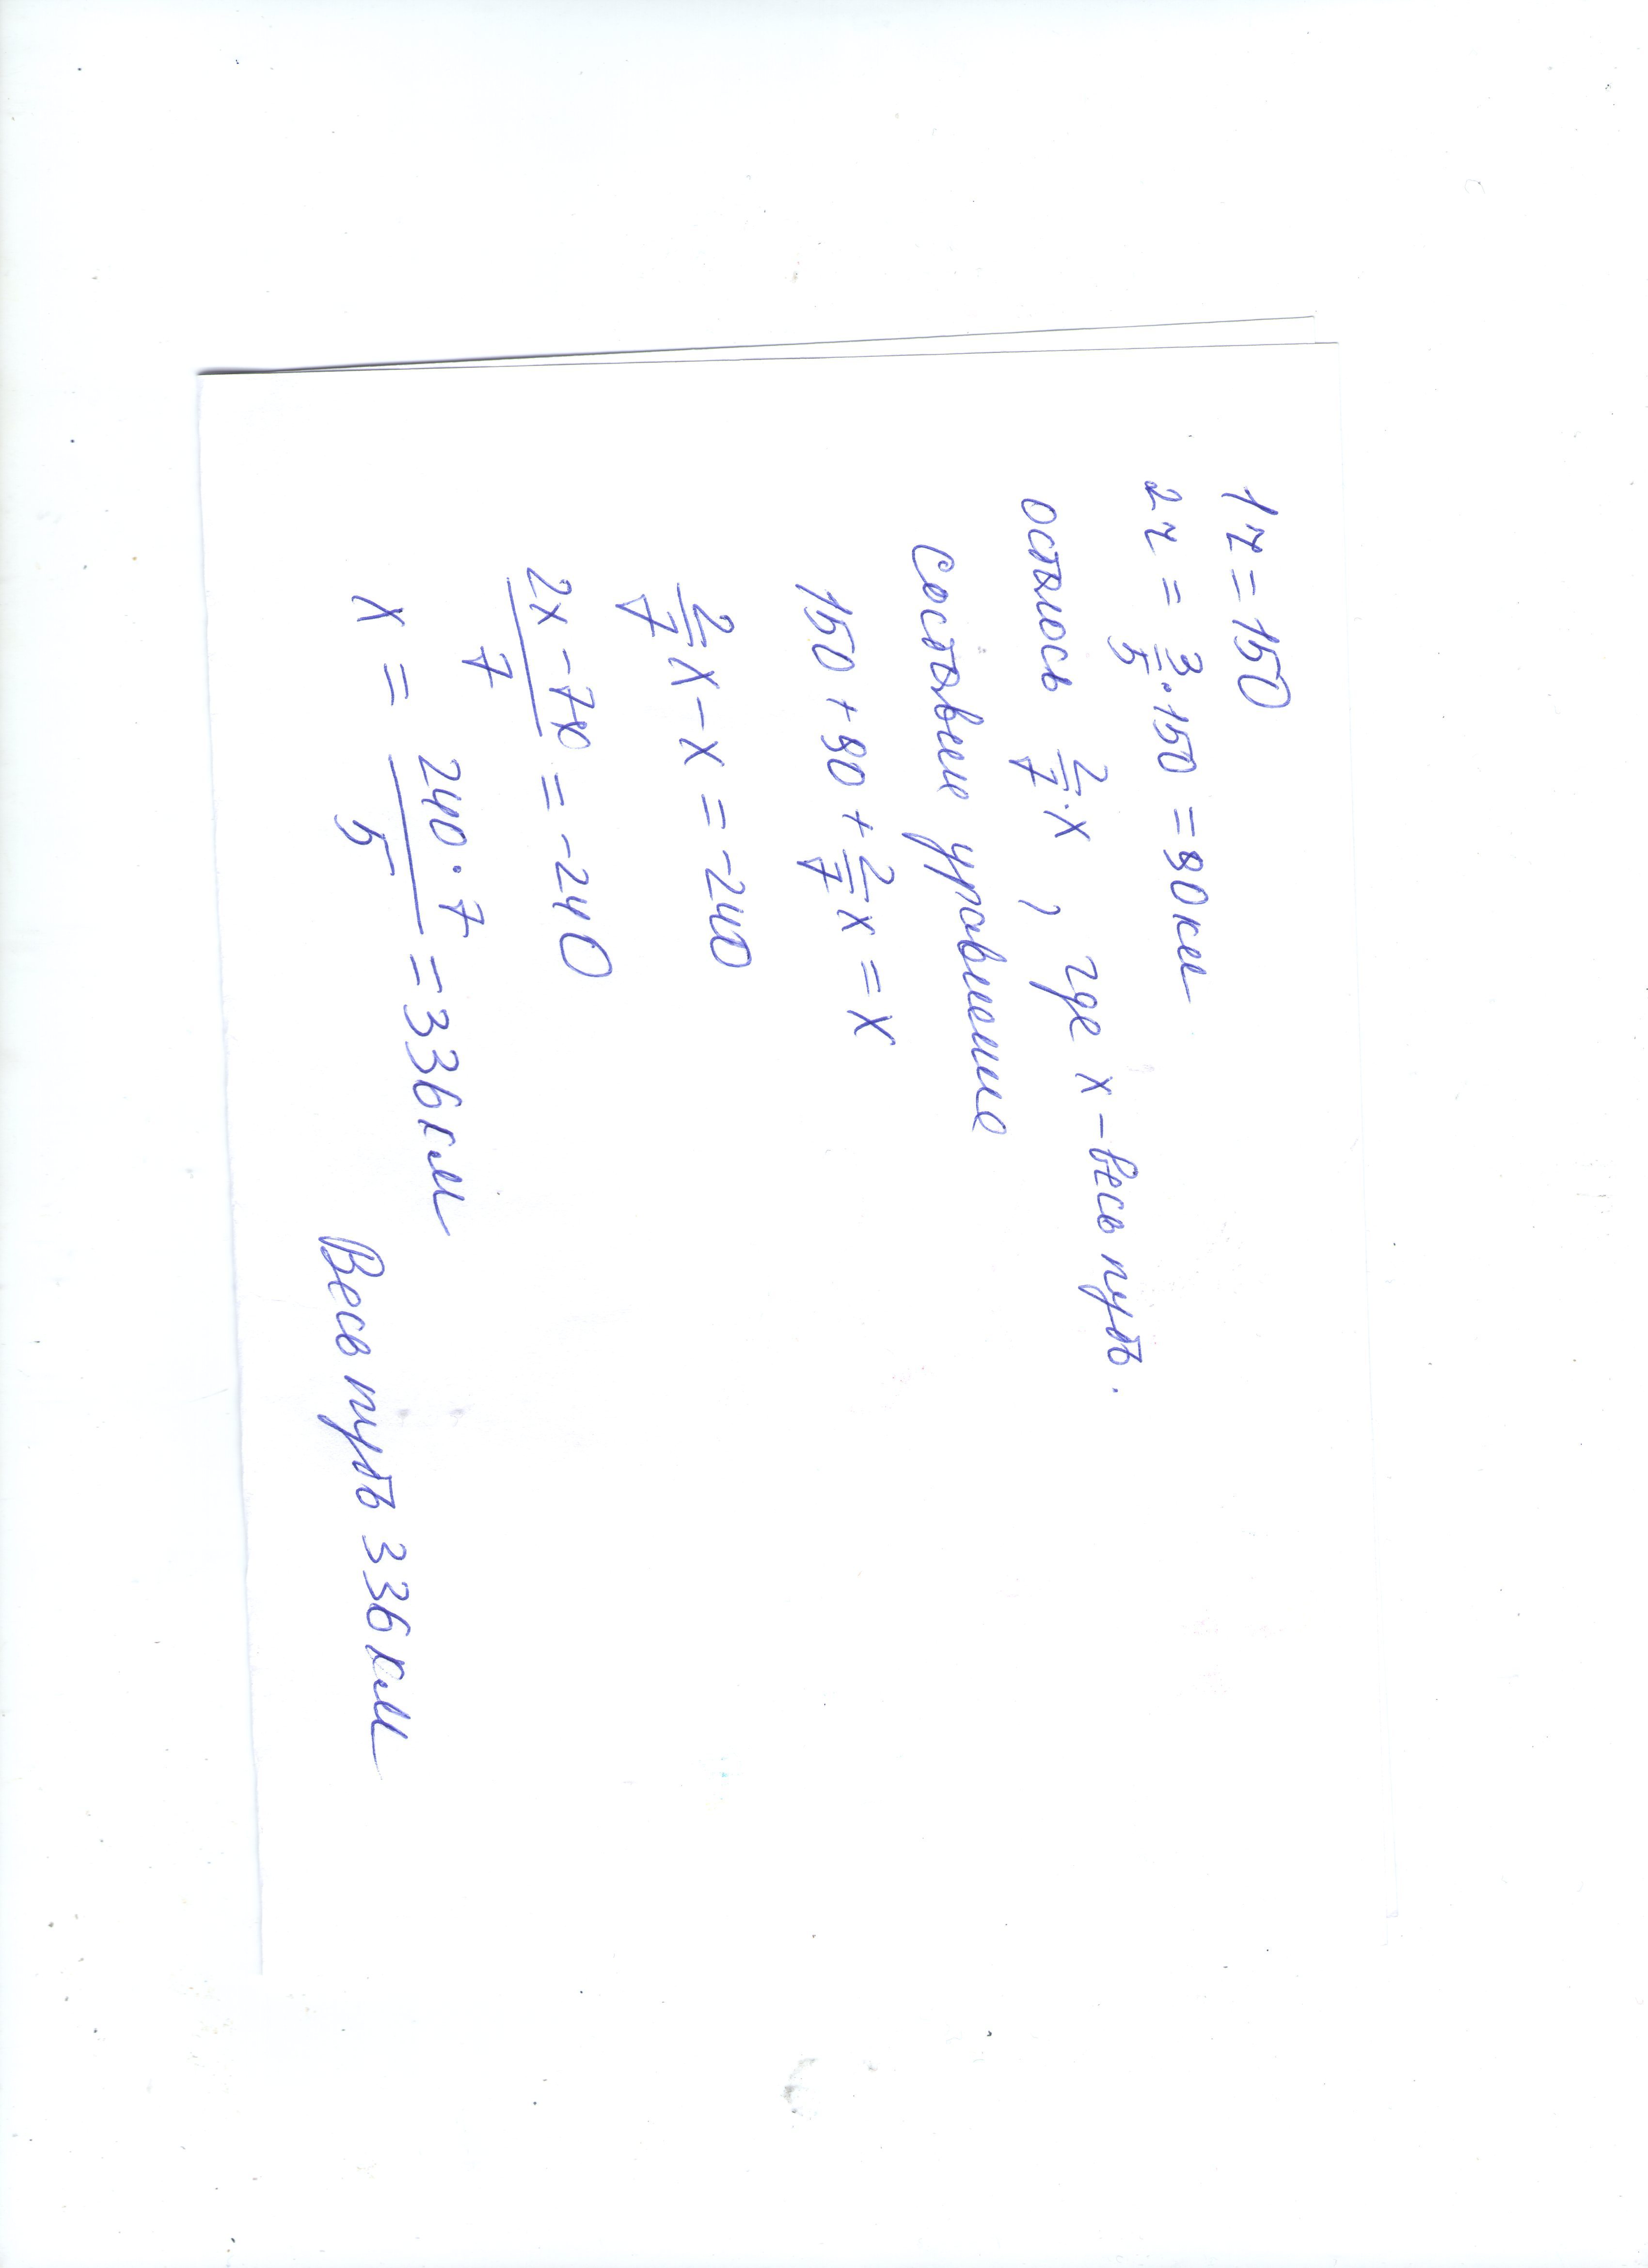 1ч = 150
2ч = 3/5 · 150 = 90 км
осталось 2/7 · x , где x – весь путь.
Составим уравнение
150 + 90 + 2/7 x = x
2/7 x – x = -240
(2x – 7x)/7 = -240
x = (240 · 7)/5 = 336 км
Весь путь 336 км